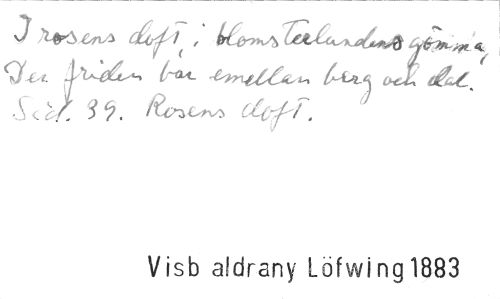 I rosens doft, i blomsterlundens gömma,
Der friden bor emellan berg och dal.
Sid. 39. Rosens doft.
Visb aldrany Löfwing 1883